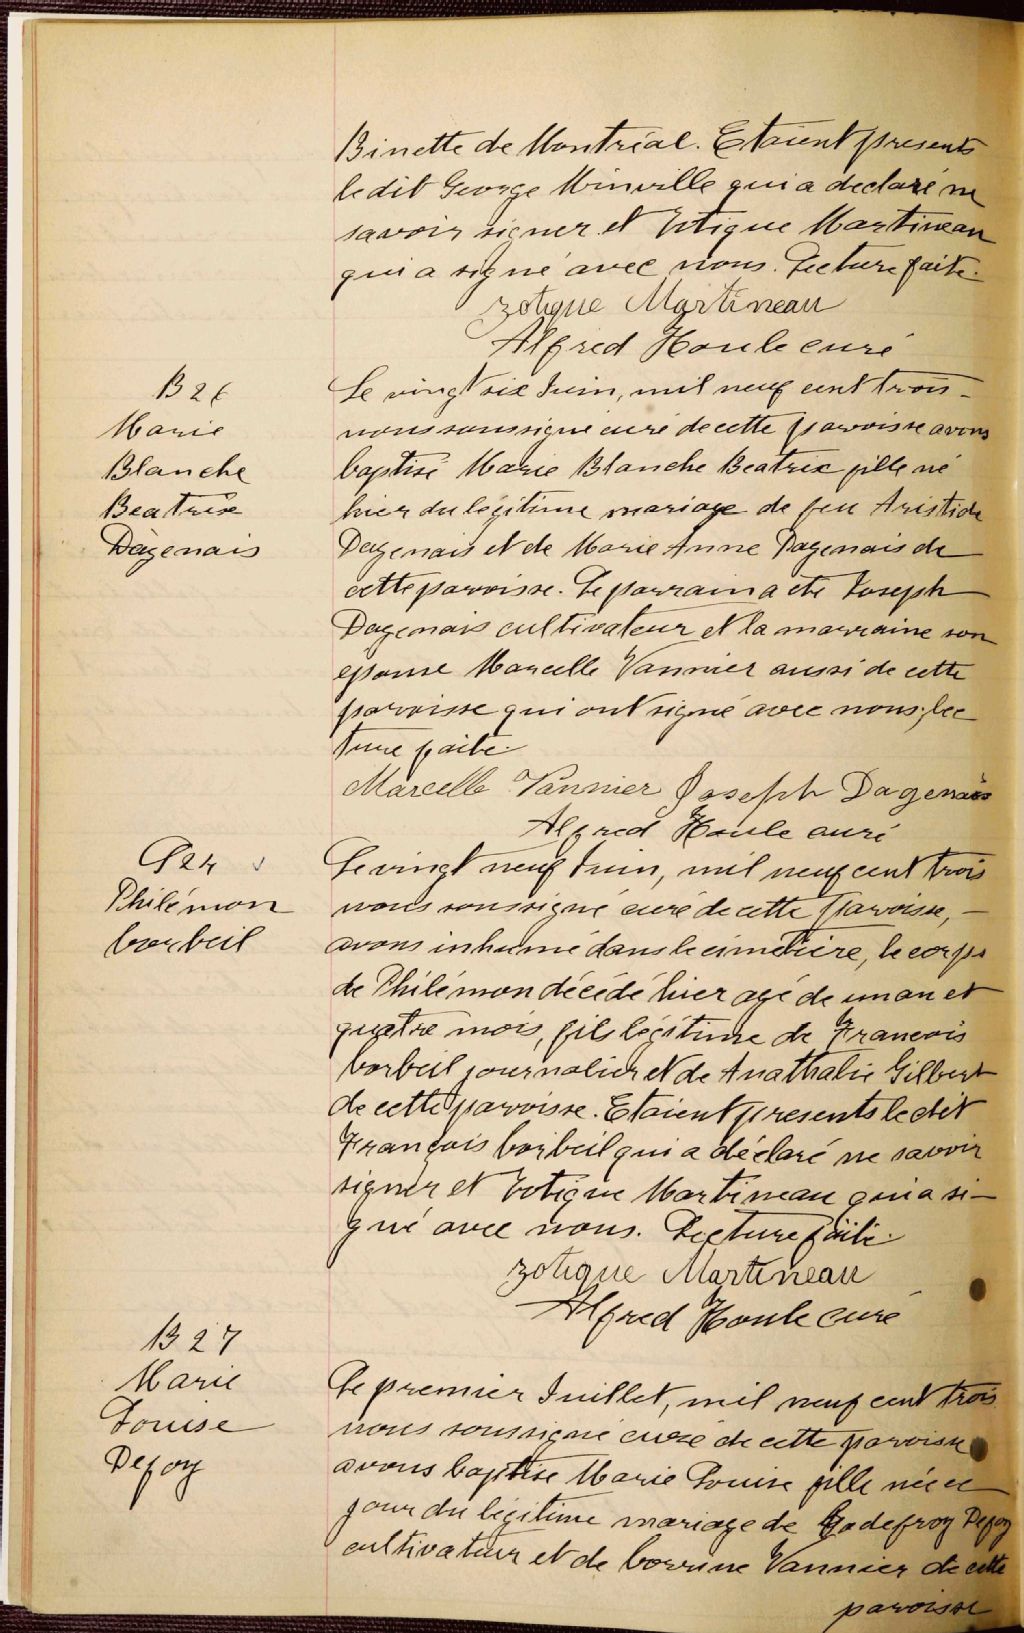 Binette de Montréal. Etaient presents
le dit George Minville qui a declaré ne
savoir signer et Zotique Martineau
qui a signé avec nous. Lecture faite.
zotique Martineau
Alfred Houle curé
B 26
Marie
Blanche
Beatrix
Dagenais
Le vingt six Juin, mil neuf cent trois -
nous soussigné curé de cette paroisse avons
baptisé Marie Blanche Beatrix fille né
hier du légitime mariage de feu Aristide
Dagenais et de Marie Anne Dagenais de
cette paroisse. Le parrain a été Joseph
Dagenais cultivateur et la marraine son
epouse Marcelle Vannier aussi de cette
paroisse qui ont signé avec nous, lec
ture faite.
Marcelle Vannier Joseph Dagenais
Alfred Houle curé
S 24
Philémon
Corbeil
Le vingt neuf Juin, mil neuf cent trois
nous soussigné curé de cette paroisse, -
avons inhumé dans le cimetière, le corps
de Philémon décédé hier agé de un an et
quatre mois, fils légitime de Francois
Corbeil journalier et de Anathalie Gilbert
de cette paroisse. Etaient presents le dit
François Corbeil qui a déclaré ne savoir
signer et Zotique Martineau qui a si-
gné avec nous. Lecture faite.
zotique Martineau
Alfred Houle curé
B 27
Marie
Louise
Defoy
Le premier Juillet, mil neuf cent trois
nous soussigné curé de cette paroisse
avons baptisé Marie Louise fille née ce
jour du légitime mariage de Godefroy Defoy
cultivateur et de Corrine Vannier de cette
paroisse